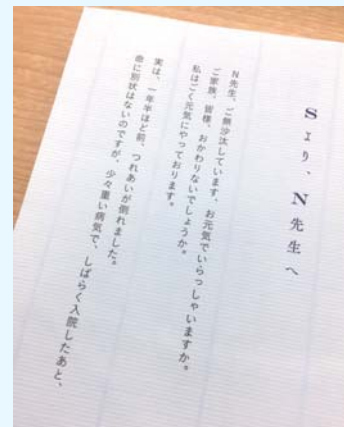 Sより、N先生へ
N先生、ご無沙汰しています。お元気でいらっしゃいますか。
ご家族、皆様、おかわりないでしょうか。
私はごく元気にやっております。
実は、一年半ほど前、つれあいが倒れました。
命に別状はないのですが、少々重い病気で、しばらく入院したあと、